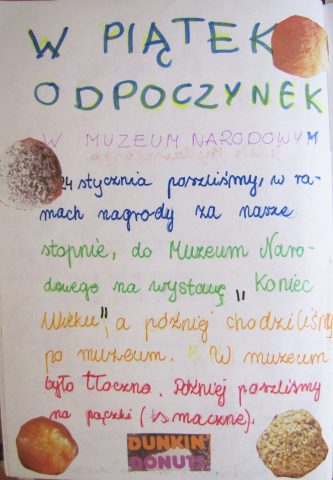 W PIĄTEK
ODPOCZYNEK
W MUZEUM NARODOWYM
24 stycznia poszliśmy, w ra-
mach nagrody za nasze
stopnie, do Muzeum Naro-
dowego na wystawę "Koniec
Wieku", a później chodziliśmy
po muzeum. W muzeum
było tłoczno. Później poszliśmy
na pączki (b. smaczne).
DUNKIN'
DONUTS